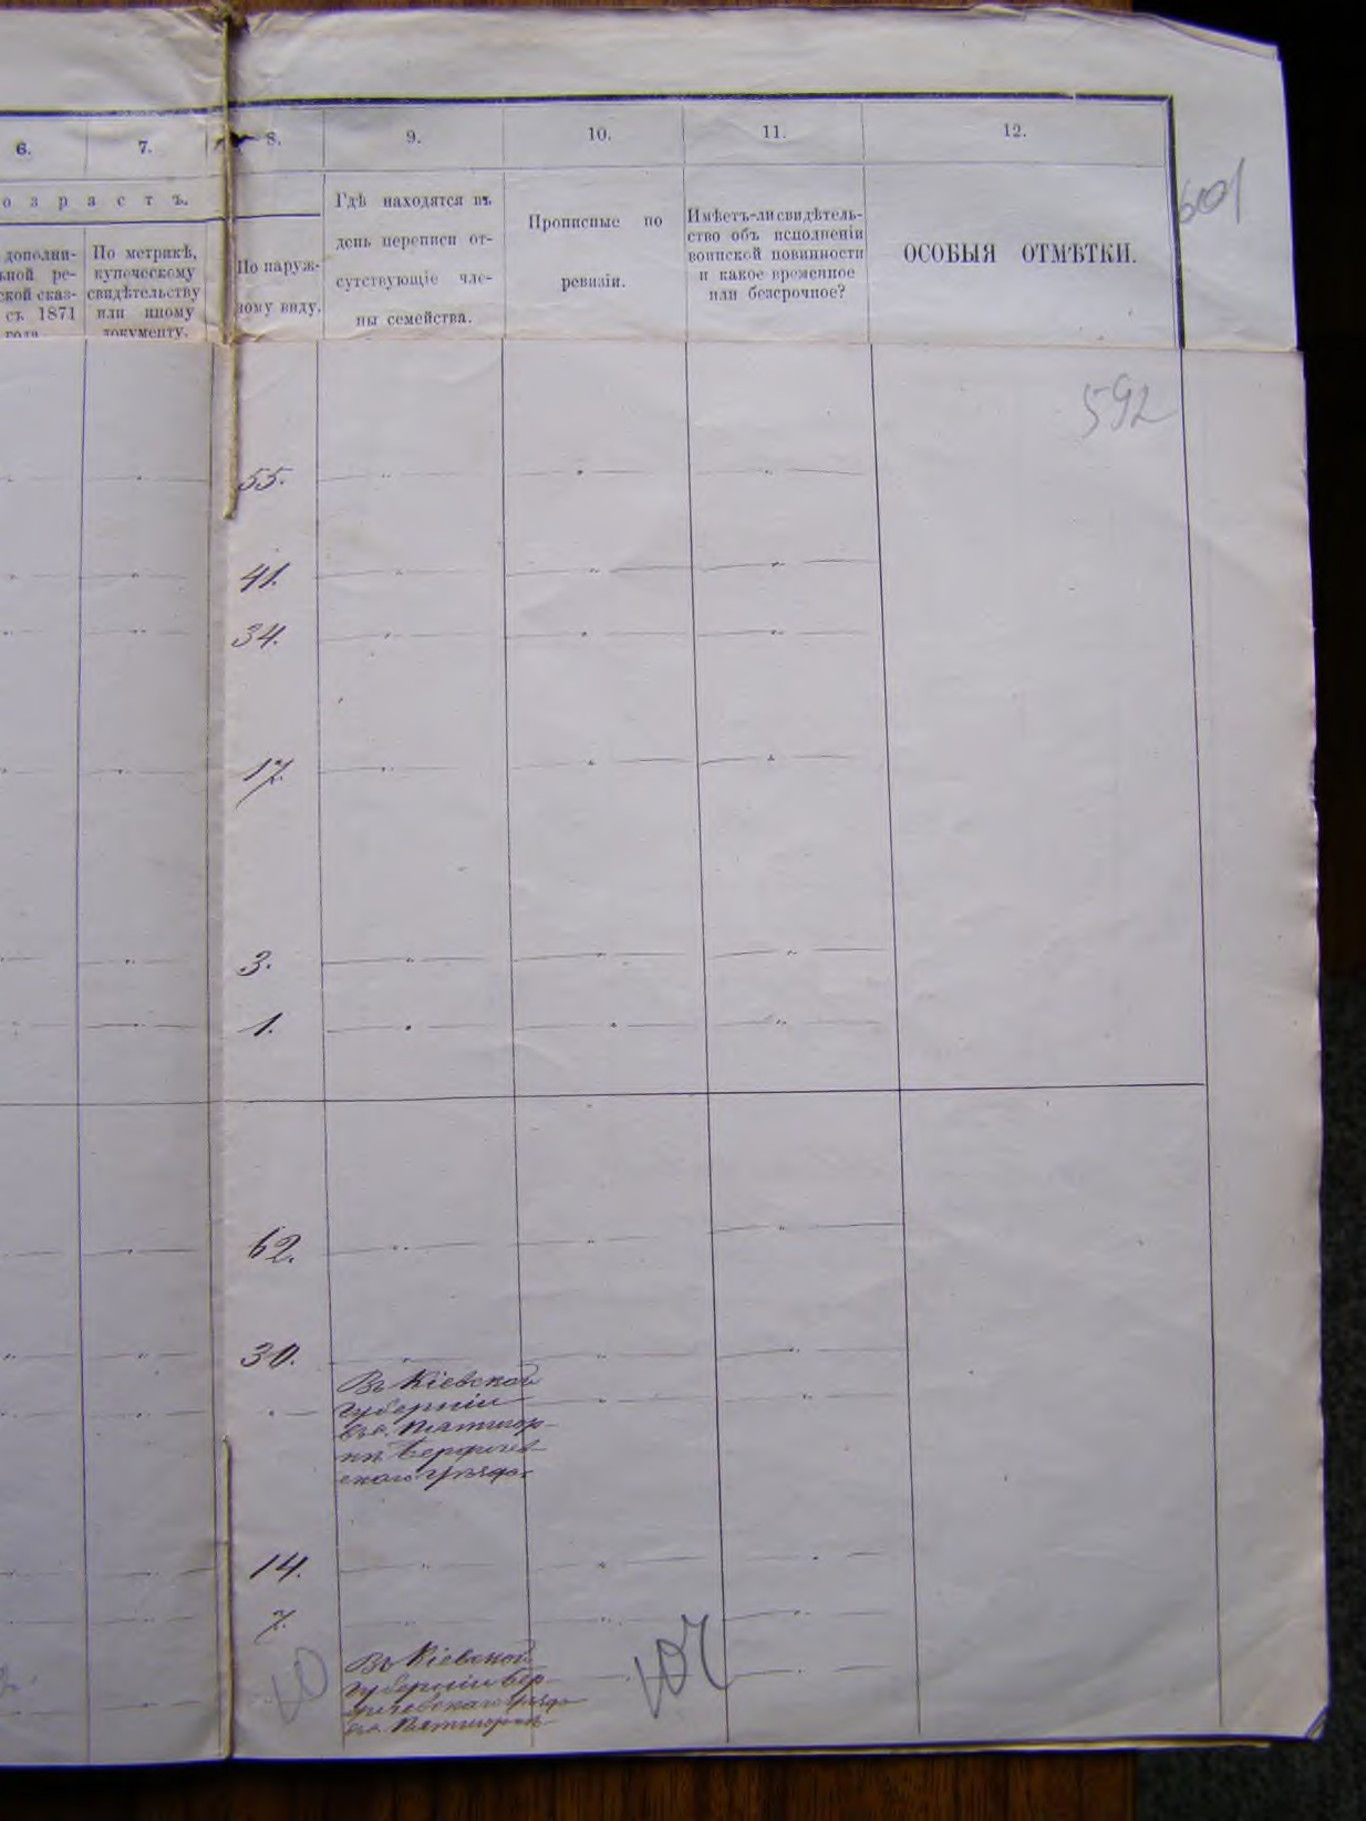 6.
7.
8.
9.
10.
11.
12.
о з р а с т ъ.
дополни-
ьной ре-
ской сказ-
съ 1871
года
По метрикѣ,
купеческому
свидѣтельству
или иному
документу.
По наруж-
ному виду.
Гдѣ находятся въ
день переписи от-
сутствующіе чле-
ны семейства.
Прописные по
ревизіи.
Имѣетъ-ли свидѣтель-
ство объ исполненіи
воинской повинности
и какое временное
или безсрочное?
ОСОБЫЯ ОТМѢТКИ.
601
592
55.
41.
34.
17.
3.
1.
62.
30.
Въ Кіевской
губерніи
въ с. Пятигор-
кѣ Бердичев-
скаго уѣзда.
14.
7.
Въ Кіевской
губерніи Бер-
дичевскаго уѣзда
въ с. Пятигоркѣ
10
107